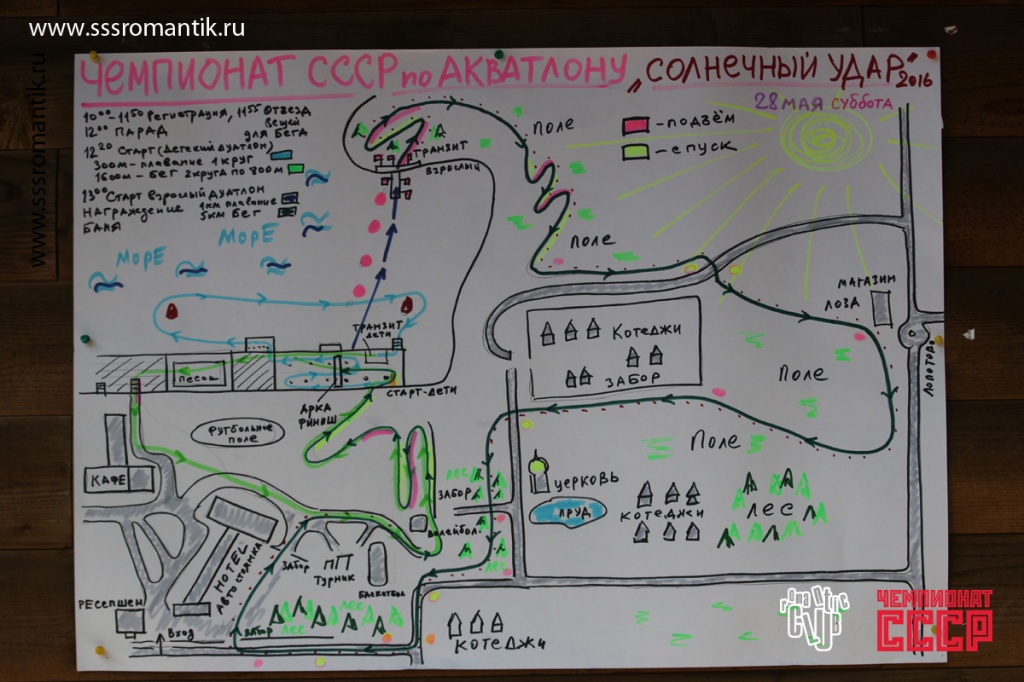 www.sssromantik.ru
www.sssromantik.ru
ЧЕМПИОНАТ СССР по АКВАТЛОНУ „СОЛНЕЧНЫЙ УДАР" 2016
28 МАЯ СУББОТА
10⁰⁰-11⁵⁰ Регистрация, 11⁵⁵ Отвезд
вещей
12⁰⁰ ПАРАД для БЕГА
12²⁰ Старт (Детский дуатлон)
300м-плавание 1 круг
1600м-БЕГ 2 круга по 800м
13⁰⁰ Старт взрослый дуатлон
1км плавание
НАГРАЖДЕНИЕ 5км БЕГ
БАНЯ
-подъём
-спуск
ТРАНЗИТ
ВЗРОСЛЫЙ
ПОЛЕ
ПОЛЕ
МОРЕ
МОРЕ
МАГАЗИН
ЛОЗА
ЛОПОТОВО
КОТЕДЖИ
ЗАБОР
ТРАНЗИТ
ДЕТИ
ПЕСОК
СТАРТ-ДЕТИ
АРКА
ФИНИШ
ПОЛЕ
ФУТБОЛЬНОЕ
ПОЛЕ
ПОЛЕ
КАФЕ
ЛЕС
ЗАБОР
ЦЕРКОВЬ
ПРУД
КОТЕДЖИ
ЛЕС
ВОЛЕЙБОЛ
HOTEL
АВТОСТОЯНКА
ЗАБОР
ТУРНИК
БАСКЕТБОЛ
ЛЕС
РЕСЕПШЕН
ВХОД
ЗАБОР
ЛЕС
ЛЕС
КОТЕДЖИ
ЧЕМПИОНАТ
СССР